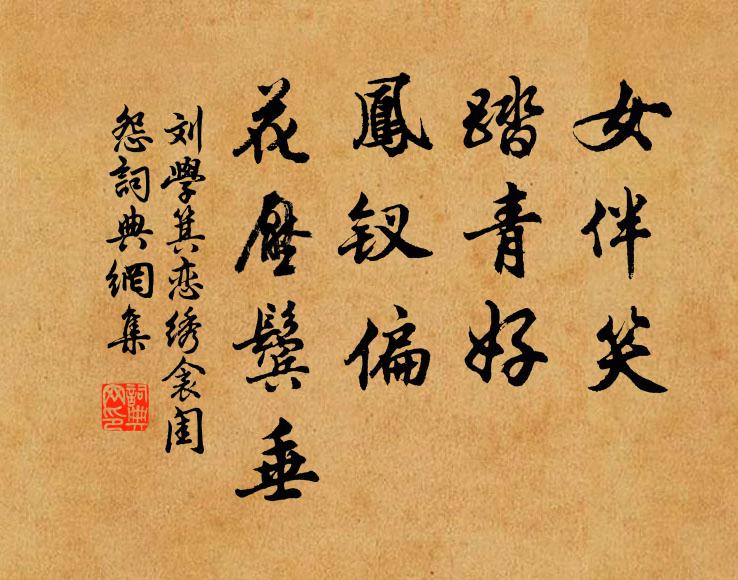 女伴笑
踏青好
鳳钗偏
花壓鬓垂
刘學箕恋绣衾闺
怨詞典網集
詞典
网印